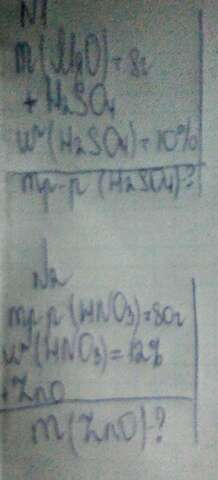 N1
m(MgO)=8г
+ H₂SO₄
w(H₂SO₄)=10%
mр-р (H₂SO₄)?
N2
mр-р (HNO₃)=80г
w(HNO₃)=12%
+ZnO
m(ZnO)-?